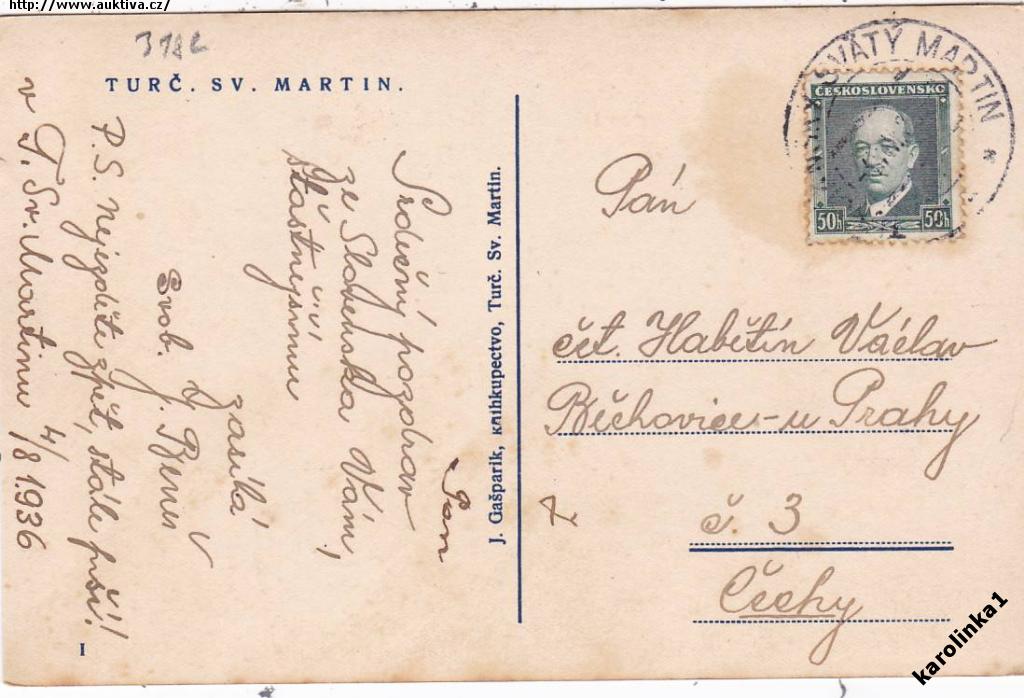 http://www.auktiva.cz/
318c
TURČ. SV. MARTIN.
Srdečný pozdrav
ze Slovenska Vám,
šťastnejšímu
zasílá
Svob. J.
P.S. Nejezděte zpět, stále prší!
v T. Sv. Martinu 4/8 1936
J. Gašparik, kníhkupectvo, Turč. Sv. Martin.
SVÄTÝ MARTIN
ČESKOSLOVENSKO
50h 50h
Pán
čet. Habětín Václav
Běchovice-u Prahy
č. 3
Čechy
I
karolinka1